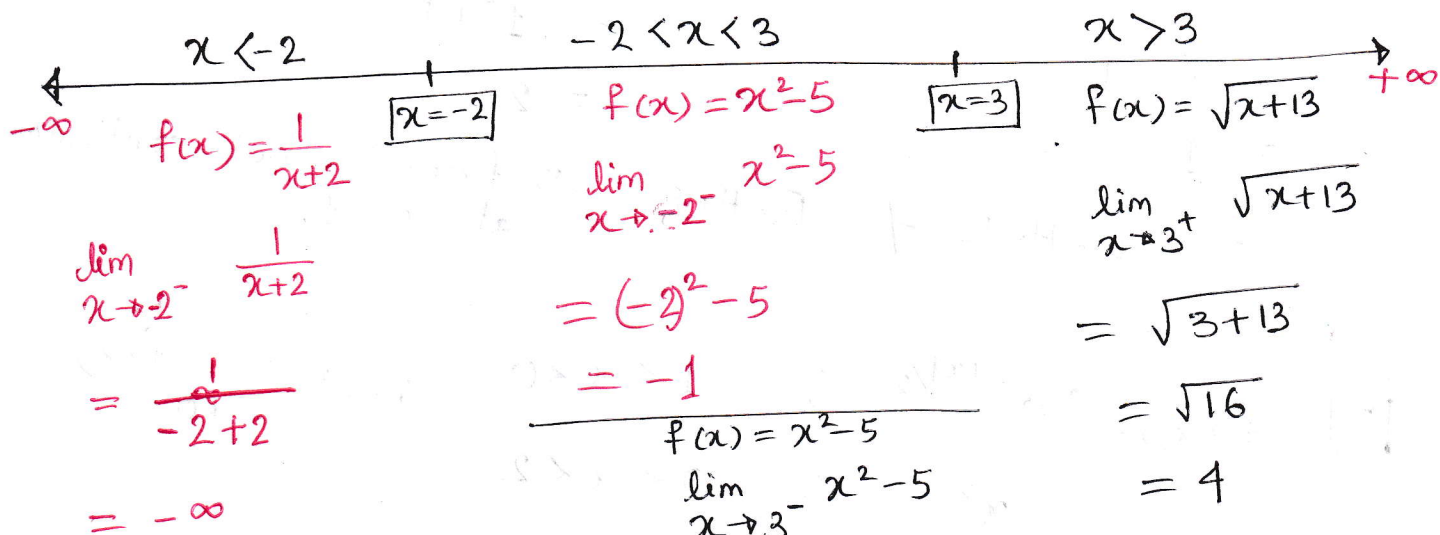 x < -2
-2 < x < 3
x > 3
-∞
x = -2
x = 3
+∞
f(x) = 1/(x+2)
lim x→-2⁻ 1/(x+2)
= 1/(-2+2)
= -∞
f(x) = x²-5
lim x→-2⁻ x²-5
= (-2)²-5
= -1
f(x) = x²-5
lim x→3⁻ x²-5
f(x) = √(x+13)
lim x→3⁺ √(x+13)
= √(3+13)
= √16
= 4